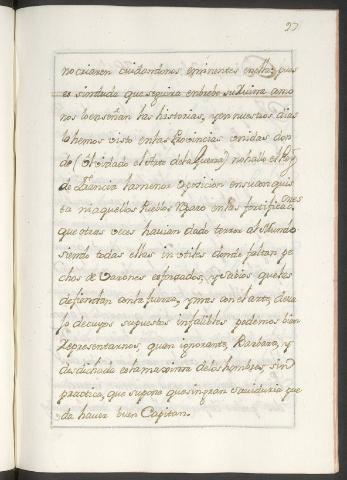 97
no criaren cuidandonos eminentes en ella; pues
es sin duda que seguira en breve su Ruina como
nos lo enseñan las historias, y en nuestros dias
lo hemos visto en las Provincias unidas don
de (olvidado el Arte de la Guerra) no hallo el Rey
de Francia la menor oposicion en su conquis
ta ni aquellos Pueblos Reparo en las fortificaciones
que otras veces havian dado terror al Mundo
siendo todas ellas inutiles donde faltan pe
chos de Varones esforzados, y sabios que las
defiendan con la fuerza, y mas con el arte; de va
lo de cuyos supuestos infalibles podemos bien
Representarnos, quan ignorante, Barbara, y
desdichada es la maxima de los hombres, sin
practica, que supone que sin gran saviduria pue
da haver buen Capitan.